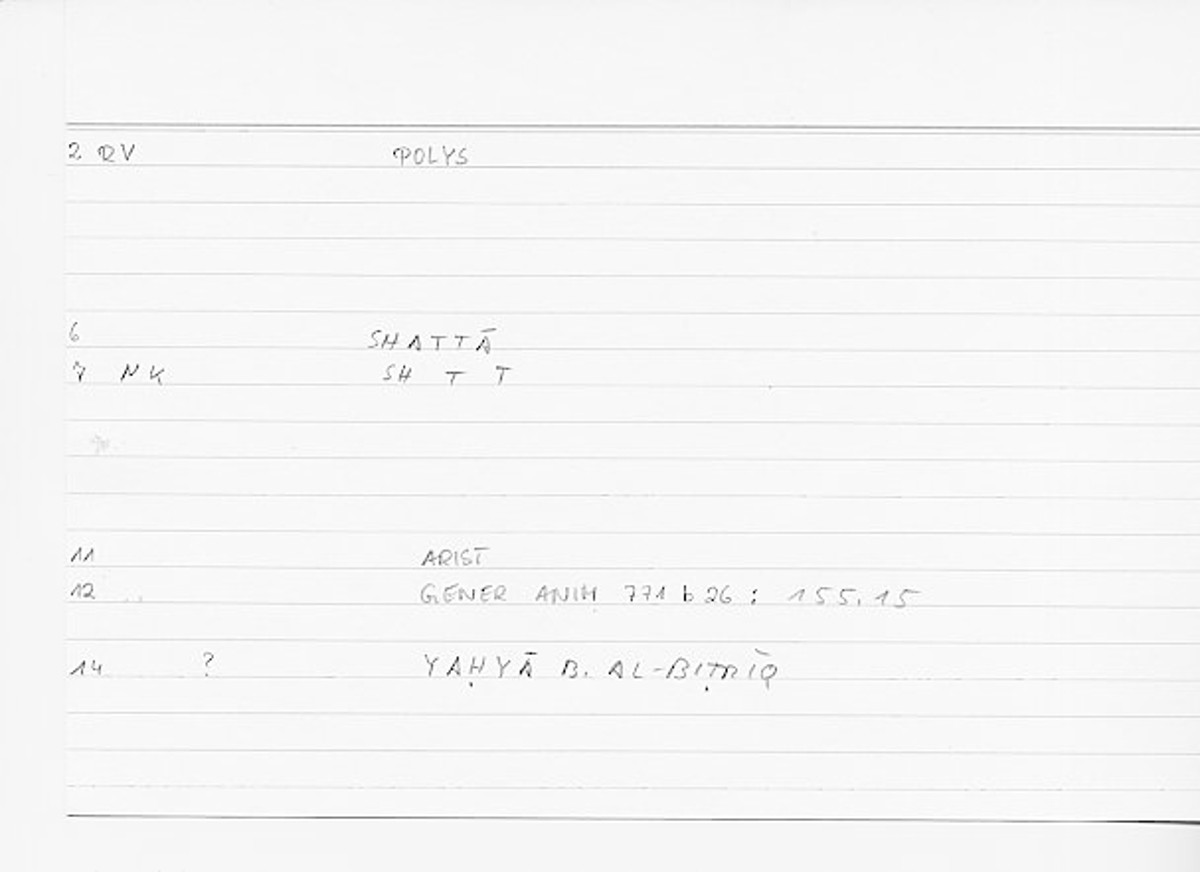 2 RV POLYS
6 SHATTĀ
7 NK SH T T
11 ARIST
12 GENER ANIM 771 b 26 : 155.15
14 ? YAḤYĀ B. AL-BIṬRĪQ